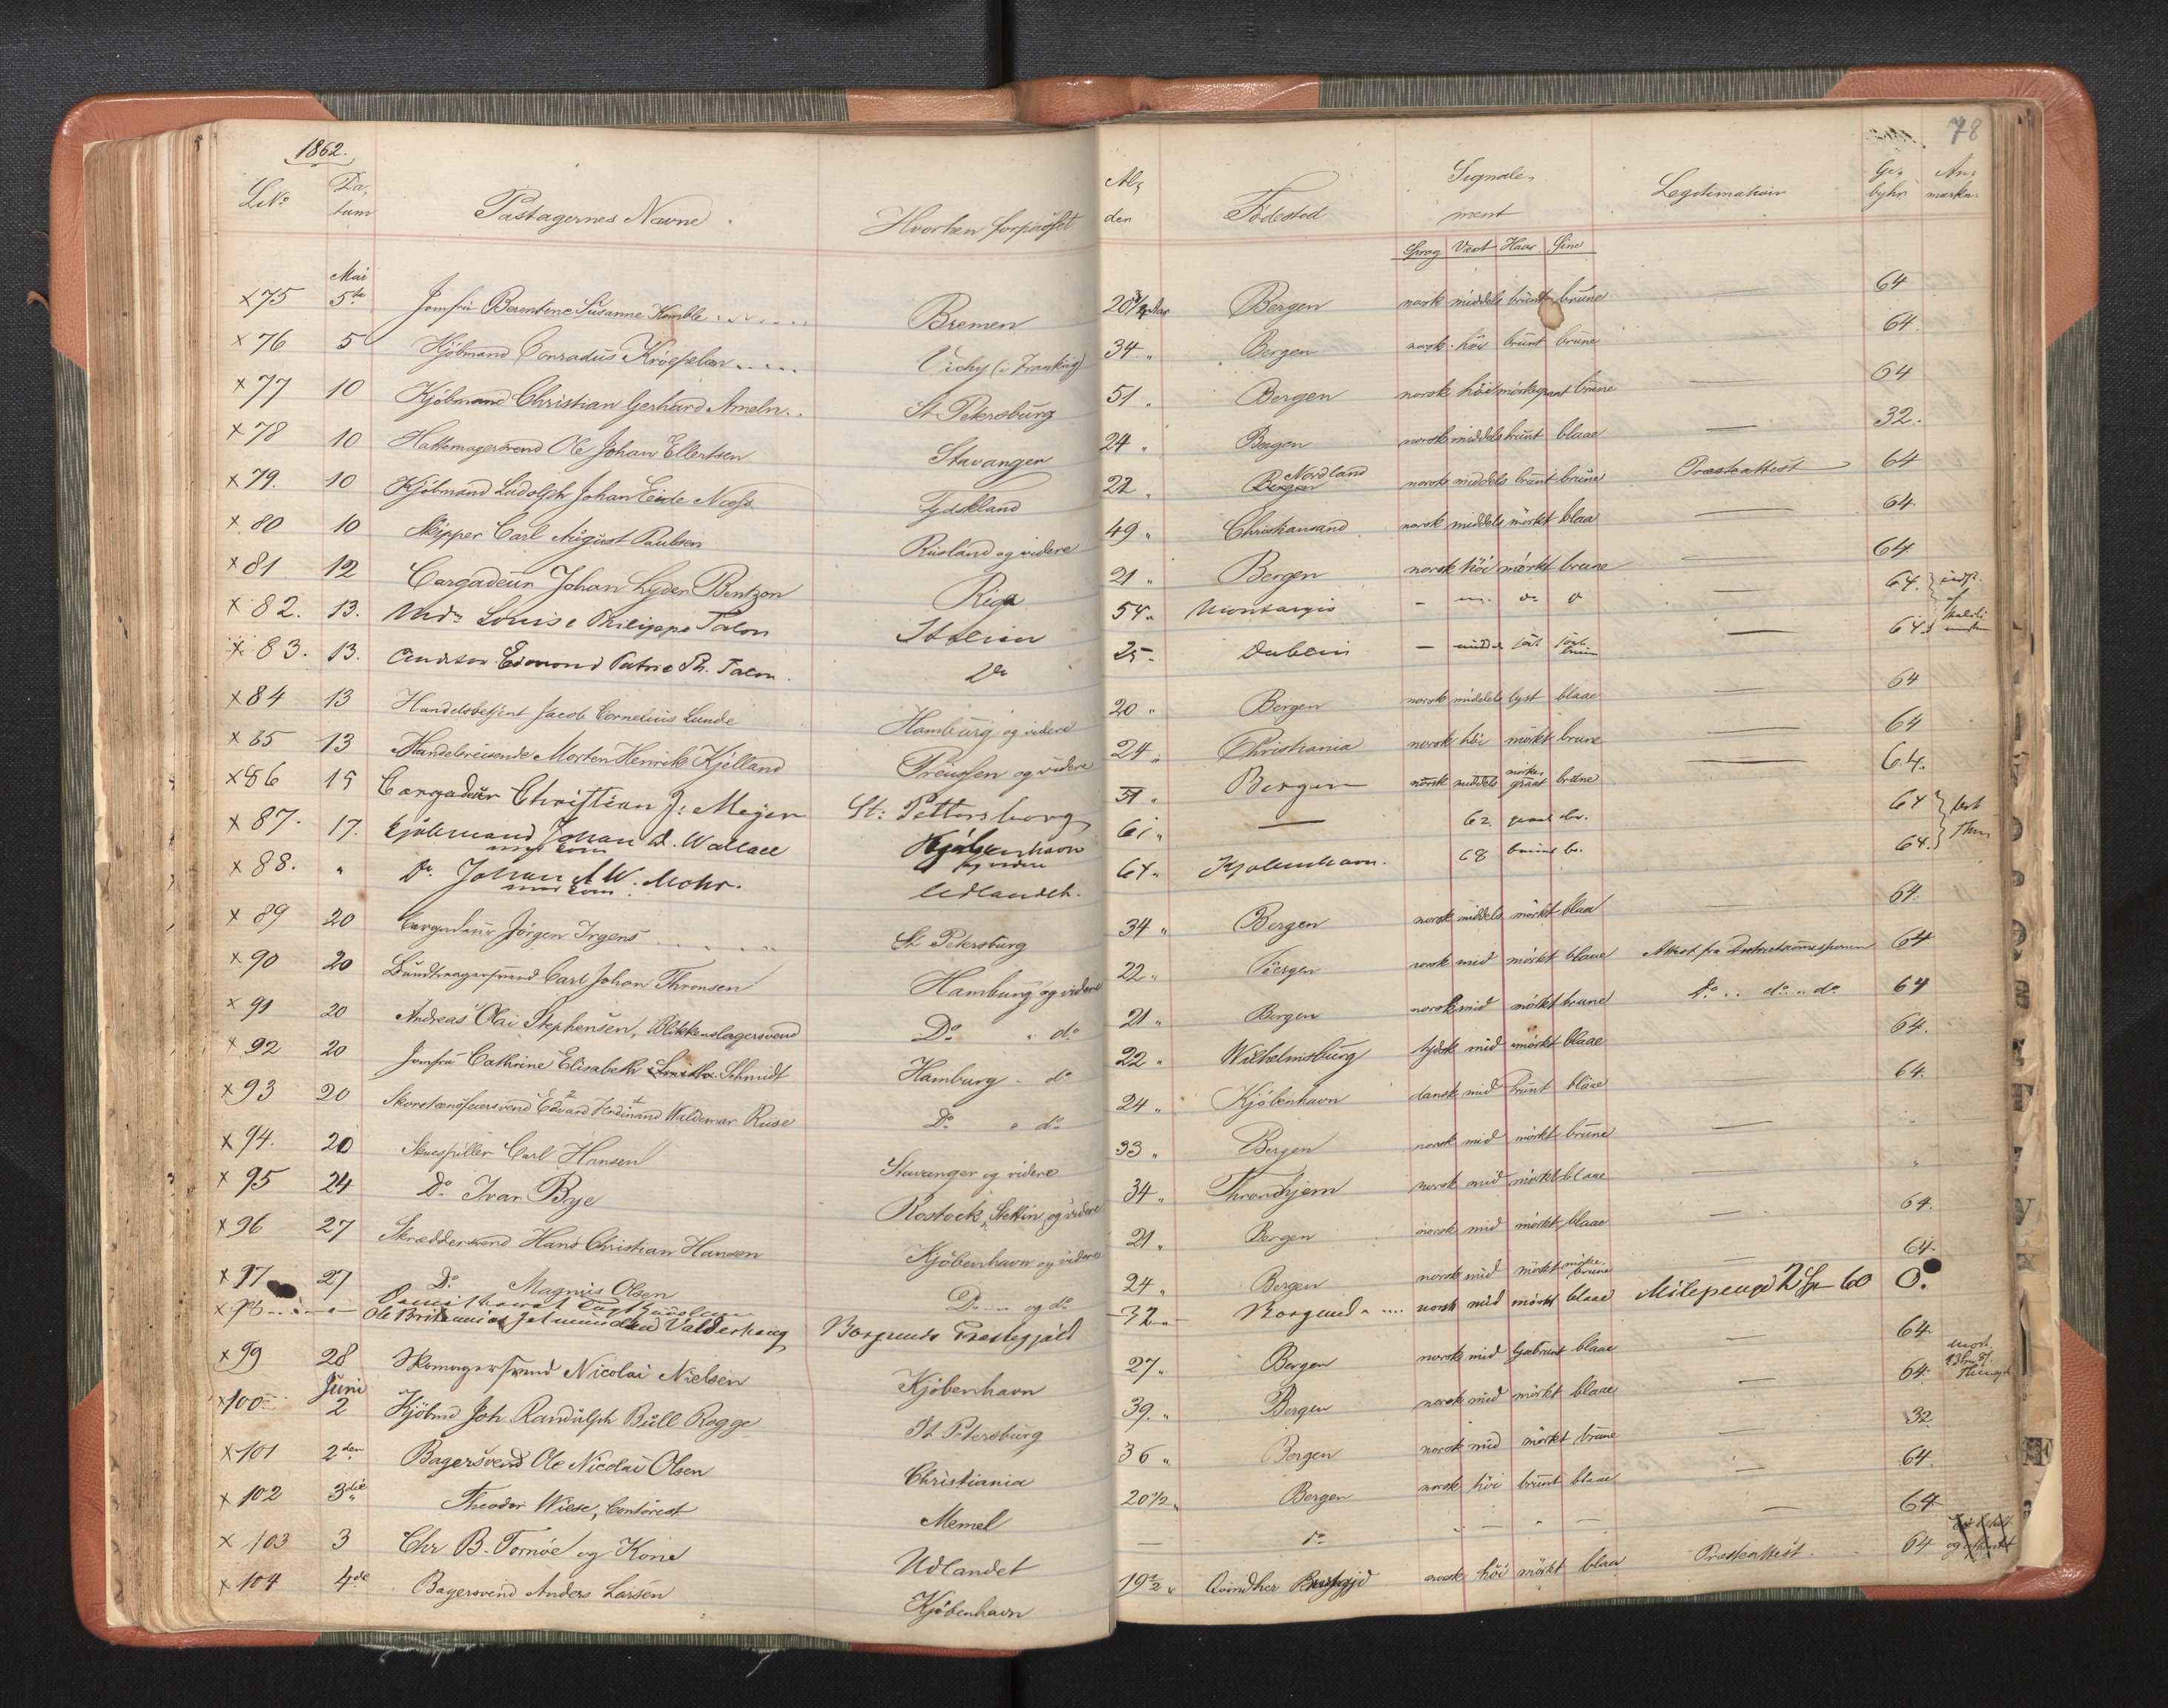 1862.
78
LNo Datum Passagernes Navne. Hvorhen forpasset Alder Födested Signalement Legitimation Gebyhr Anmærkn.
Sprog Væxt Haar Öine
Mai
x 75 5te Jomfru Berentine Susanne Komble Bremen 20 3/4 Aar Bergen norsk middels brunt brune — 64
x 76 5 Kjöbmand Conradus Kröepelien Vichy (i Frankrig) 34 " Bergen norsk höi brunt brune 64.
x 77 10 Kjöbmand Christian Gerhard Ameln St Petersburg 51 " Bergen norsk höi mörkegraat brune — 64
x 78 10 Hattemagersvend Ole Johan Ellertsen Stavanger 24 " Bergen norsk middels brunt blaae — 32.
x 79. 10 Kjöbmand Ludolph Johan Eide Næss Tydskland 22 " Bergen Nordland norsk middels brunt brune Præsteattest 64
x 80 10 Skipper Carl August Paulsen Rusland og videre 49 " Christiansand norsk middels mörkt blaa — 64.
x 81 12 Cargadeur Johan Lyder Bentzon Riga 21 " Bergen norsk höi mörkt brune — 64
x 82. 13. Louise Philippe Talon Italien 54 " — 64.
x 83. 13. Edmond Patric Ph. Talon. Do 25 " Dublin — 64.
x 84 13 Handelsbetjent Jacob Cornelius Lunde Hamburg og videre 20 " Bergen norsk middels lyst blaae — 64
x 85 13 Handelsreisende Morten Henrik Kjelland Preussen og videre 24 " Christiania norsk höi mörkt brune — 64
x 86 15 Cargadeur Christian J: Meyer St: Pettersborg 51 " Bergen norsk middels mörkegraat brune — 64.
x 87. 17. Kjöbmand Johan D. Wallace med Kone Kjöbenhavn og videre 61 " — 62. 64
x 88. " Do Johan A W. Mohr. med Kone Udlandet. 64 " Kjöbenhavn. 68 64.
x 89 20 Cargadeur Jörgen Irgens St Petersburg 34 " Bergen norsk middels mörkt blaa — 64.
x 90 20 Carl Johan Thronsen Hamburg og videre 22 " norsk mid mörkt blaae Attest fra 64
x 91 20 Andreas Olai Stephensen, Blikkenslagersvend Do " do 21 " Bergen norsk mid mörkt brune Do .. do .. do 64
x 92 20 Jomfru Cathrine Elisabeth Smith Schmidt Hamburg - do 22 " Wilhelmsburg tydsk mid mörkt blaae 64.
x 93 20 Skorstensfeiersvend Edvard Ferdinand Waldemar Ruse Do " do 24 " Kjöbenhavn dansk mid brunt blaae 64.
x 94. 20 Skuespiller Carl Hansen Stavanger og videre 33 " Bergen norsk mid mörkt brune — "
x 95 24 Do Ivar Bye Rostock, Stettin og videre 34 " Throndhjem norsk mid mörkt blaae — "
x 96 27 Skræddersvend Hans Christian Hansen Kjöbenhavn og videre 21 " Bergen norsk mid mörkt blaae — 64.
x 97 27 Do Magnus Olsen Do og do 24 " Bergen norsk mid mörkt mörkebrune — 64.
x 98 Ole Valderhaug Borgunds Præstegjæld 32 Borgund norsk mid mörkt blaae Milepenge 2 Sp 60 0.
x 99 28 Skomagersvend Nicolai Nielsen Kjöbenhavn 27 " Bergen norsk mid lysebrunt blaae — 64.
Juni
x 100 2 Kjöbmd Joh. Randulph Bull Rogge St Petersburg 39. " Bergen norsk mid mörkt blaae — 64.
x 101 2den Bagersvend Ole Nicolai Olsen Christiania 36 " Bergen norsk mid mörkt brune — 32
x 102 3die Theodor Wiese, Contorist Memel 20 1/2 " Bergen norsk höi brunt blaae — 64.
x 103 3 Chr B. Tornöe og Kone Udlandet — do — 64
x 104 4de Bagersvend Anders Larsen Kjöbenhavn 19 1/2 " Qvindher Præstgjd norsk höi mörkt blaa Præsteattest 64